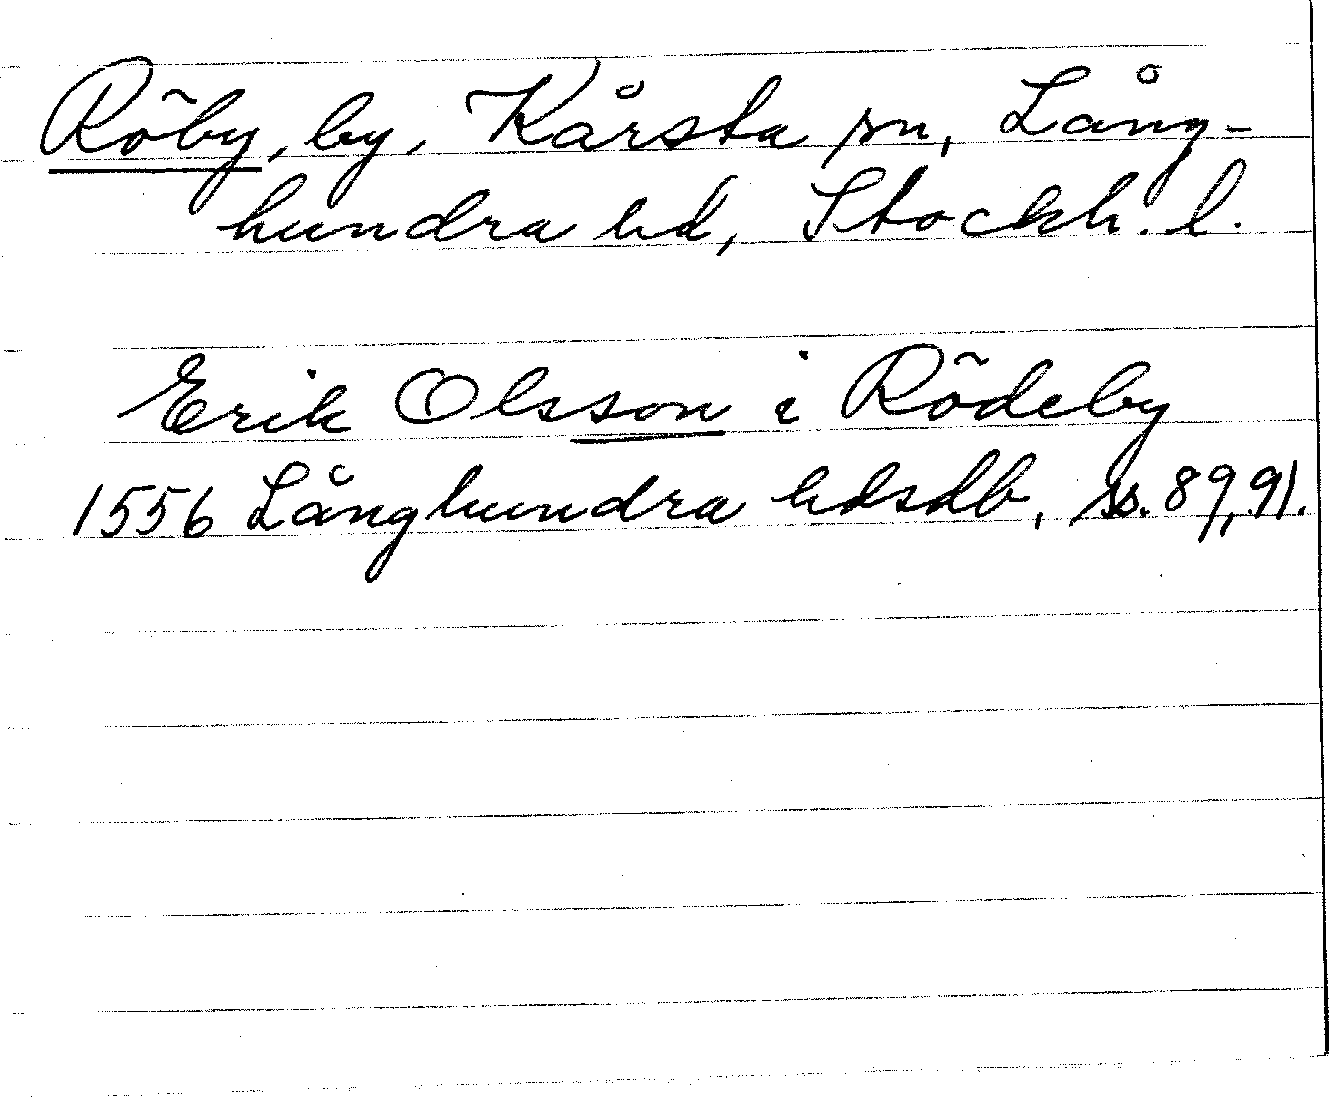 Röby, by, Kårsta sn, Lång-
hundra hd, Stockh. l.
Erik Olsson i Rödeby
1556 Långhundra hdsdb, ss. 89, 91.